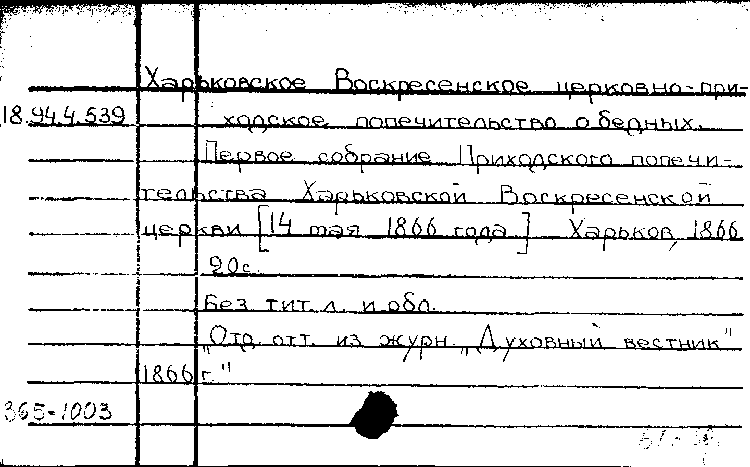 Харьковское Воскресенское церковно-при-
18.94.4.539 ходское попечительство о бедных.
Первое собрание Приходского попечи-
тельства Харьковской Воскресенской
церкви [14 мая 1866 года] Харьков, 1866
20с.
Без тит. л. и обл.
„Отд. отт. из журн. „Духовный вестник"
1866 г."
365-1003